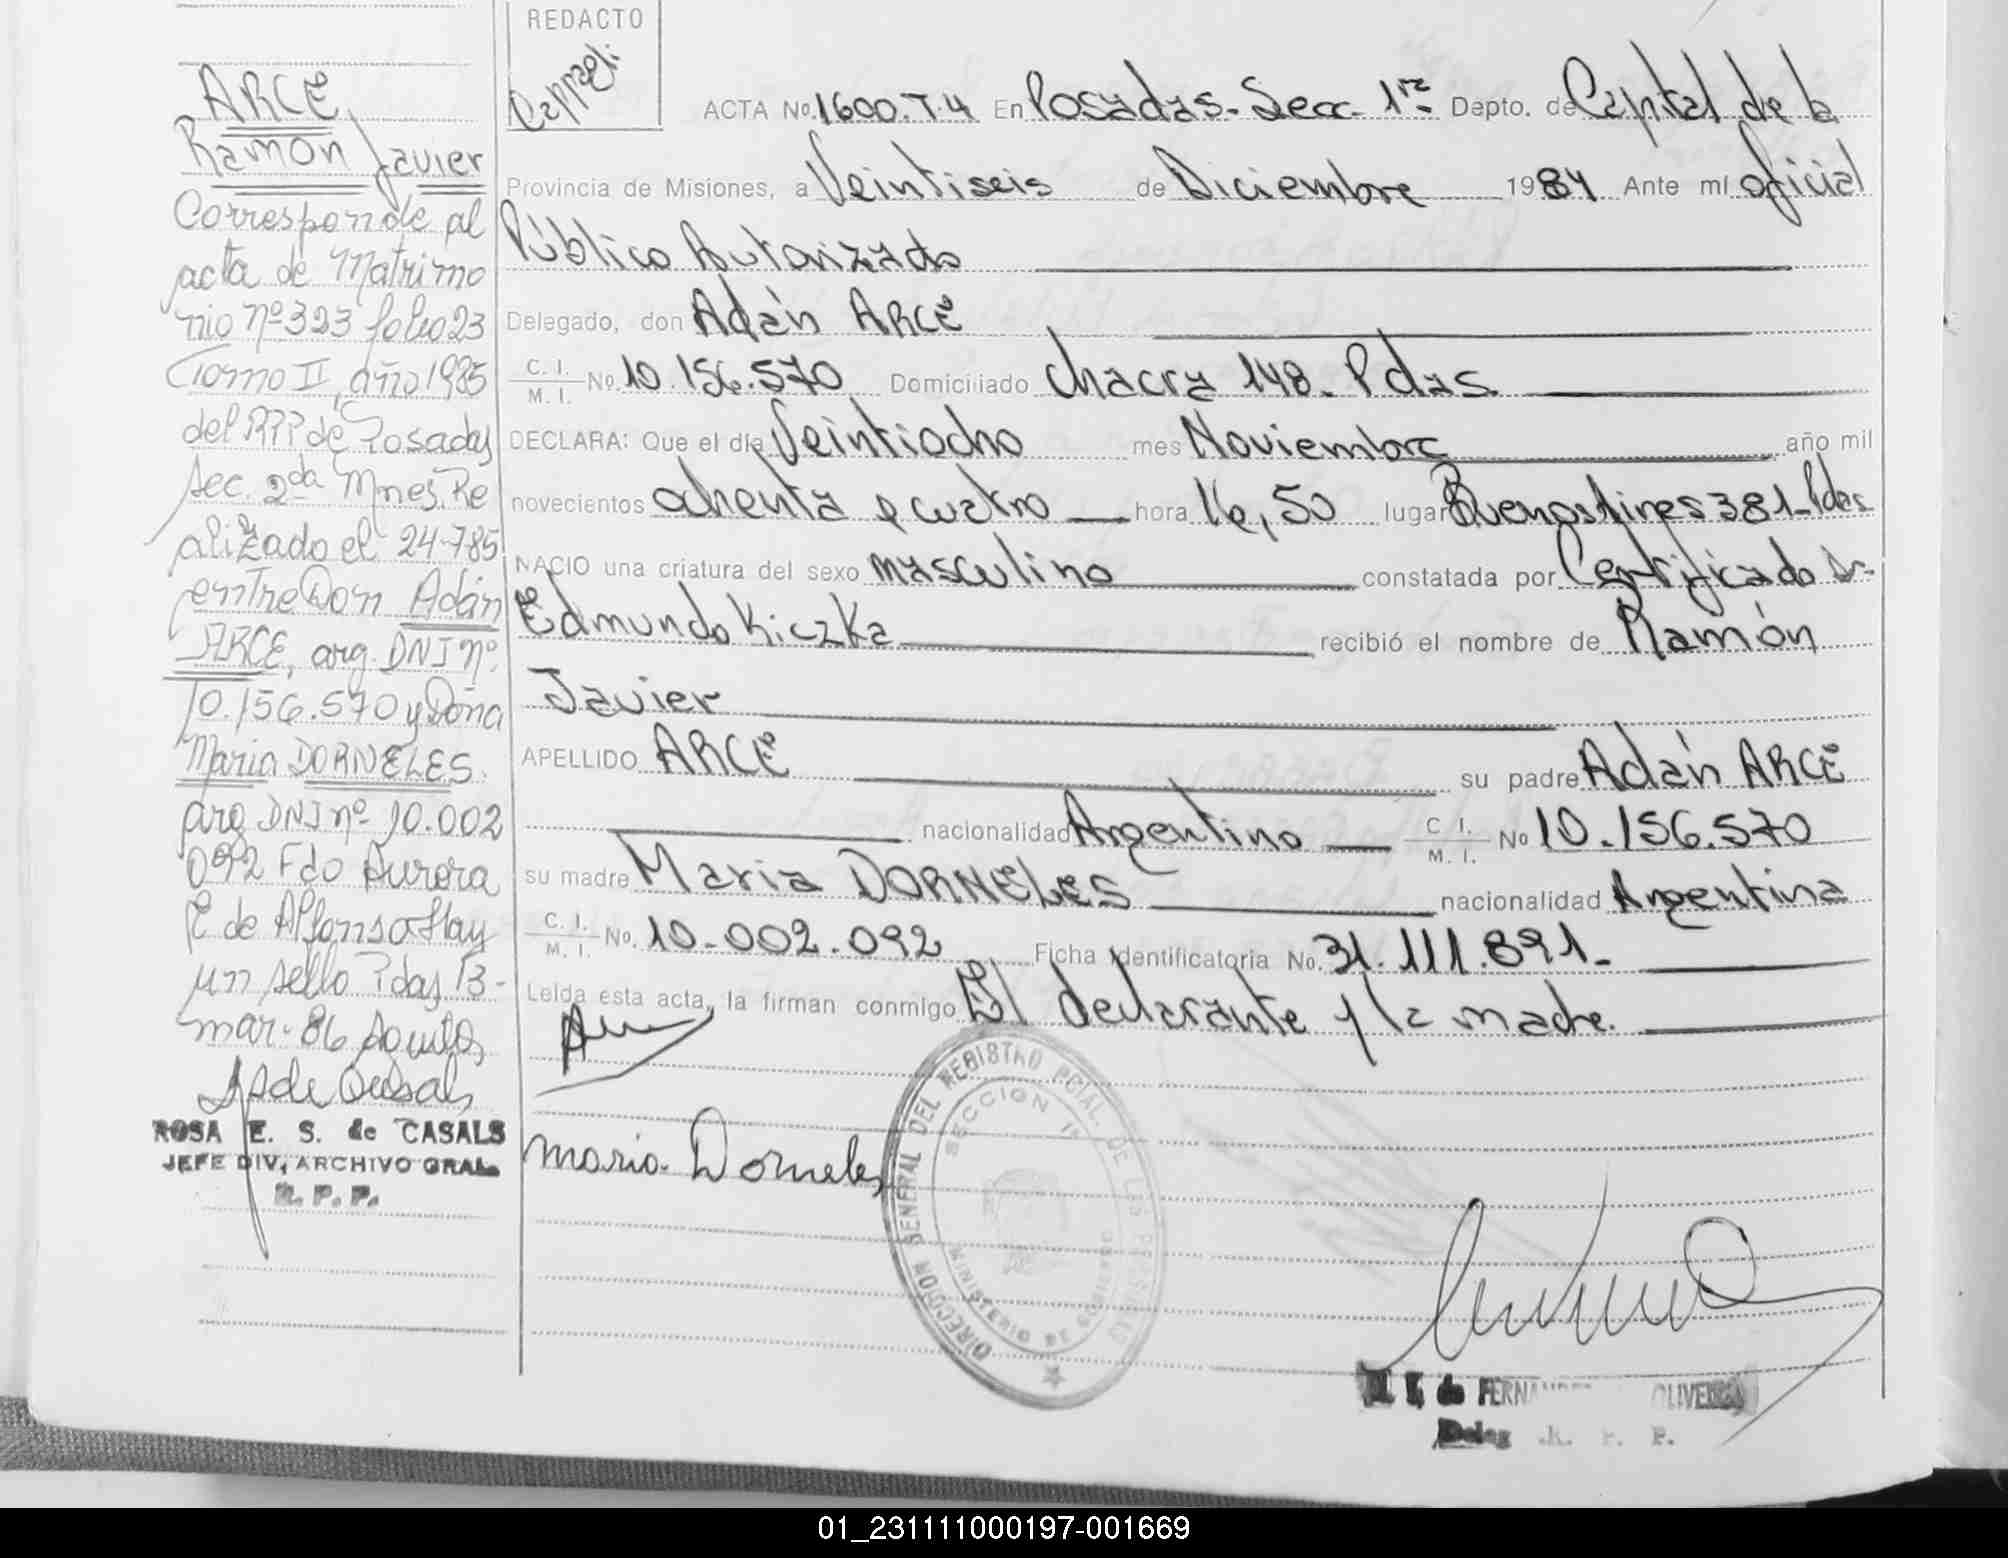 REDACTO
Cappagli
ARCE
Ramón Javier
Corresponde al
acta de Matrimo
nio nº 323 folio 23
Tomo II, año 1985
del RPP de Posadas
Sec. 2da Mnes. Re
alizado el 24-7-85
entre Don Adán
ARCE, arg. DNI nº
10.156.570 y Doña
Maria DORNELES
arg DNI nº 10.002
092 Fdo Aurora
E de Alfonso Hay
un sello Pdas 13-
mar-86
ROSA E. S. de CASALS
JEFE DIV. ARCHIVO GRAL.
R. P. P.
ACTA No. 1600.T.4 En Posadas-Secc. 1ra Depto. de Capital de la
Provincia de Misiones, a Veintiseis de Diciembre 1984 Ante mí oficial
Público Autorizado
Delegado, don Adán ARCE
C. I. M. I. No. 10.156.570 Domiciliado chacra 148. Pdas.
DECLARA: Que el día Veintiocho mes Noviembre año mil
novecientos ochenta y cuatro hora 16,50 lugar Buenos Aires 381-Pdas
NACIO una criatura del sexo masculino constatada por Certificado Dr.
Edmundo Kiczka recibió el nombre de Ramón
Javier
APELLIDO ARCE su padre Adán ARCE
nacionalidad Argentino C. I. M. I. No 10.156.570
su madre Maria DORNELES nacionalidad Argentina
C. I. M. I. No. 10.002.092 Ficha identificatoria No. 31.111.891.
Leída esta acta, la firman conmigo El declarante y la madre.
Maria Dorneles
DIRECCION GENERAL DEL REGISTRO PCIAL. DE LAS PERSONAS
SECCION 1ª
MINISTERIO DE GOBIERNO
de FERNANDEZ OLIVEIRA
Deleg. R. P. P.
01_231111000197-001669